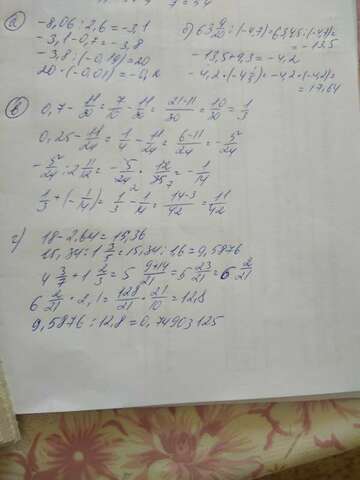 7 = 54
а) -8,06 : 2,6 = -3,1
-3,1 - 0,7 = -3,8
-3,8 : (-0,19) = 20
20 · (-0,01) =
б) 63 9/20 : (-4,7) = 63,45 : (-4,7) =
= -13,5
-13,5 + 9,3 = -4,2
-4,2 · (-4 1/5) = -4,2 · (-4,2) =
= 17,64
в) 0,7 - 11/30 = 7/10 - 11/30 = 21-11/30 = 10/30 = 1/3
0,25 - 11/24 = 1/4 - 11/24 = 6-11/24 = -5/24
-5/24 : 2 11/12 = -5/24 · 12/35 = -1/14
1/3 + (-1/14) = 1/3 - 1/14 = 14-3/42 = 11/42
г) 18 - 2,64 = 15,36
15,34 : 1 3/5 = 15,34 : 1,6 = 9,5876
4 3/7 + 1 2/3 = 5 9+14/21 = 5 23/21 = 6 2/21
6 2/21 · 2,1 = 128/21 · 21/10 = 12,8
9,5876 : 12,8 = 0,74903125